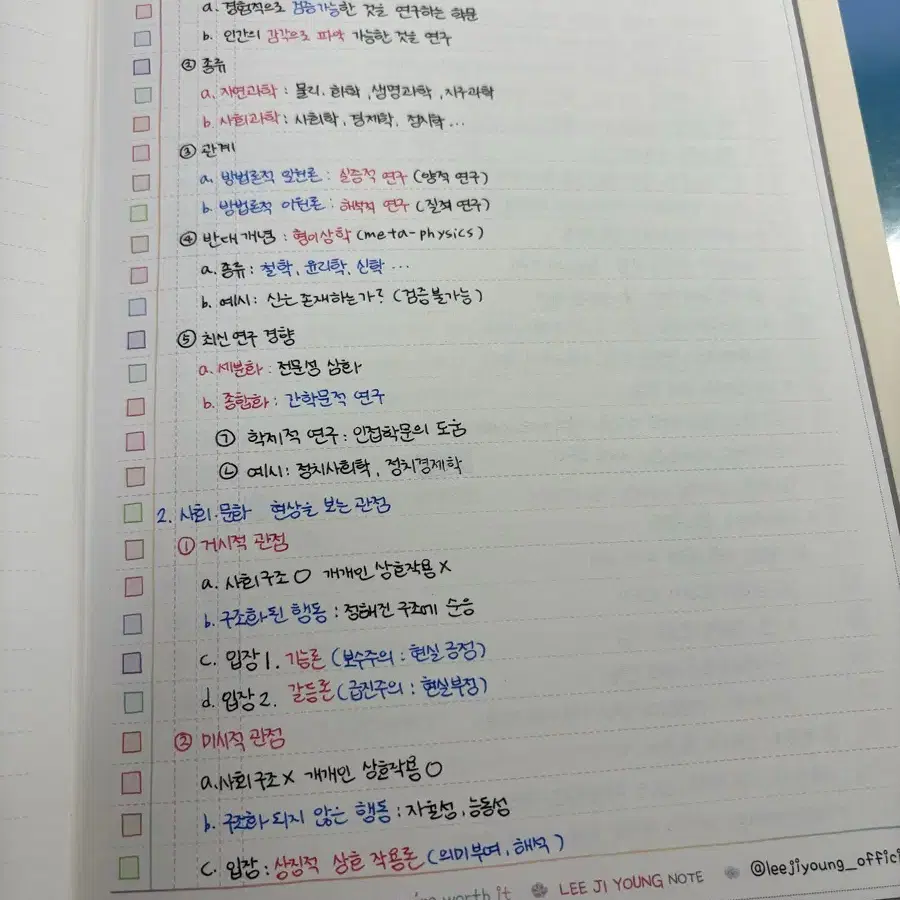 a. 경험적으로 검증가능한 것을 연구하는 학문
b. 인간의 감각으로 파악 가능한 것을 연구
② 종류
a. 자연과학 : 물리, 화학, 생명과학, 지구과학
b. 사회과학 : 사회학, 경제학, 정치학 ...
③ 관계
a. 방법론적 일원론 : 실증적 연구 (양적 연구)
b. 방법론적 이원론 : 해석적 연구 (질적 연구)
④ 반대개념 : 형이상학 (meta-physics)
a. 종류 : 철학, 윤리학, 신학 ...
b. 예시 : 신은 존재하는가? (검증불가능)
⑤ 최신 연구 경향
a. 세분화 : 전문성 심화
b. 종합화 : 간학문적 연구
㉠ 학제적 연구 : 인접학문의 도움
㉡ 예시 : 정치사회학, 정치경제학
2. 사회·문화 현상을 보는 관점
① 거시적 관점
a. 사회구조 O 개개인 상호작용 X
b. 구조화된 행동 : 정해진 구조에 순응
c. 입장 1. 기능론 (보수주의 : 현실 긍정)
d. 입장 2. 갈등론 (급진주의 : 현실부정)
② 미시적 관점
a. 사회구조 X 개개인 상호작용 O
b. 구조화 되지 않은 행동 : 자율성, 능동성
c. 입장 : 상징적 상호 작용론 (의미부여, 해석)
worth it LEE JI YOUNG NOTE @leejiyoung_offici